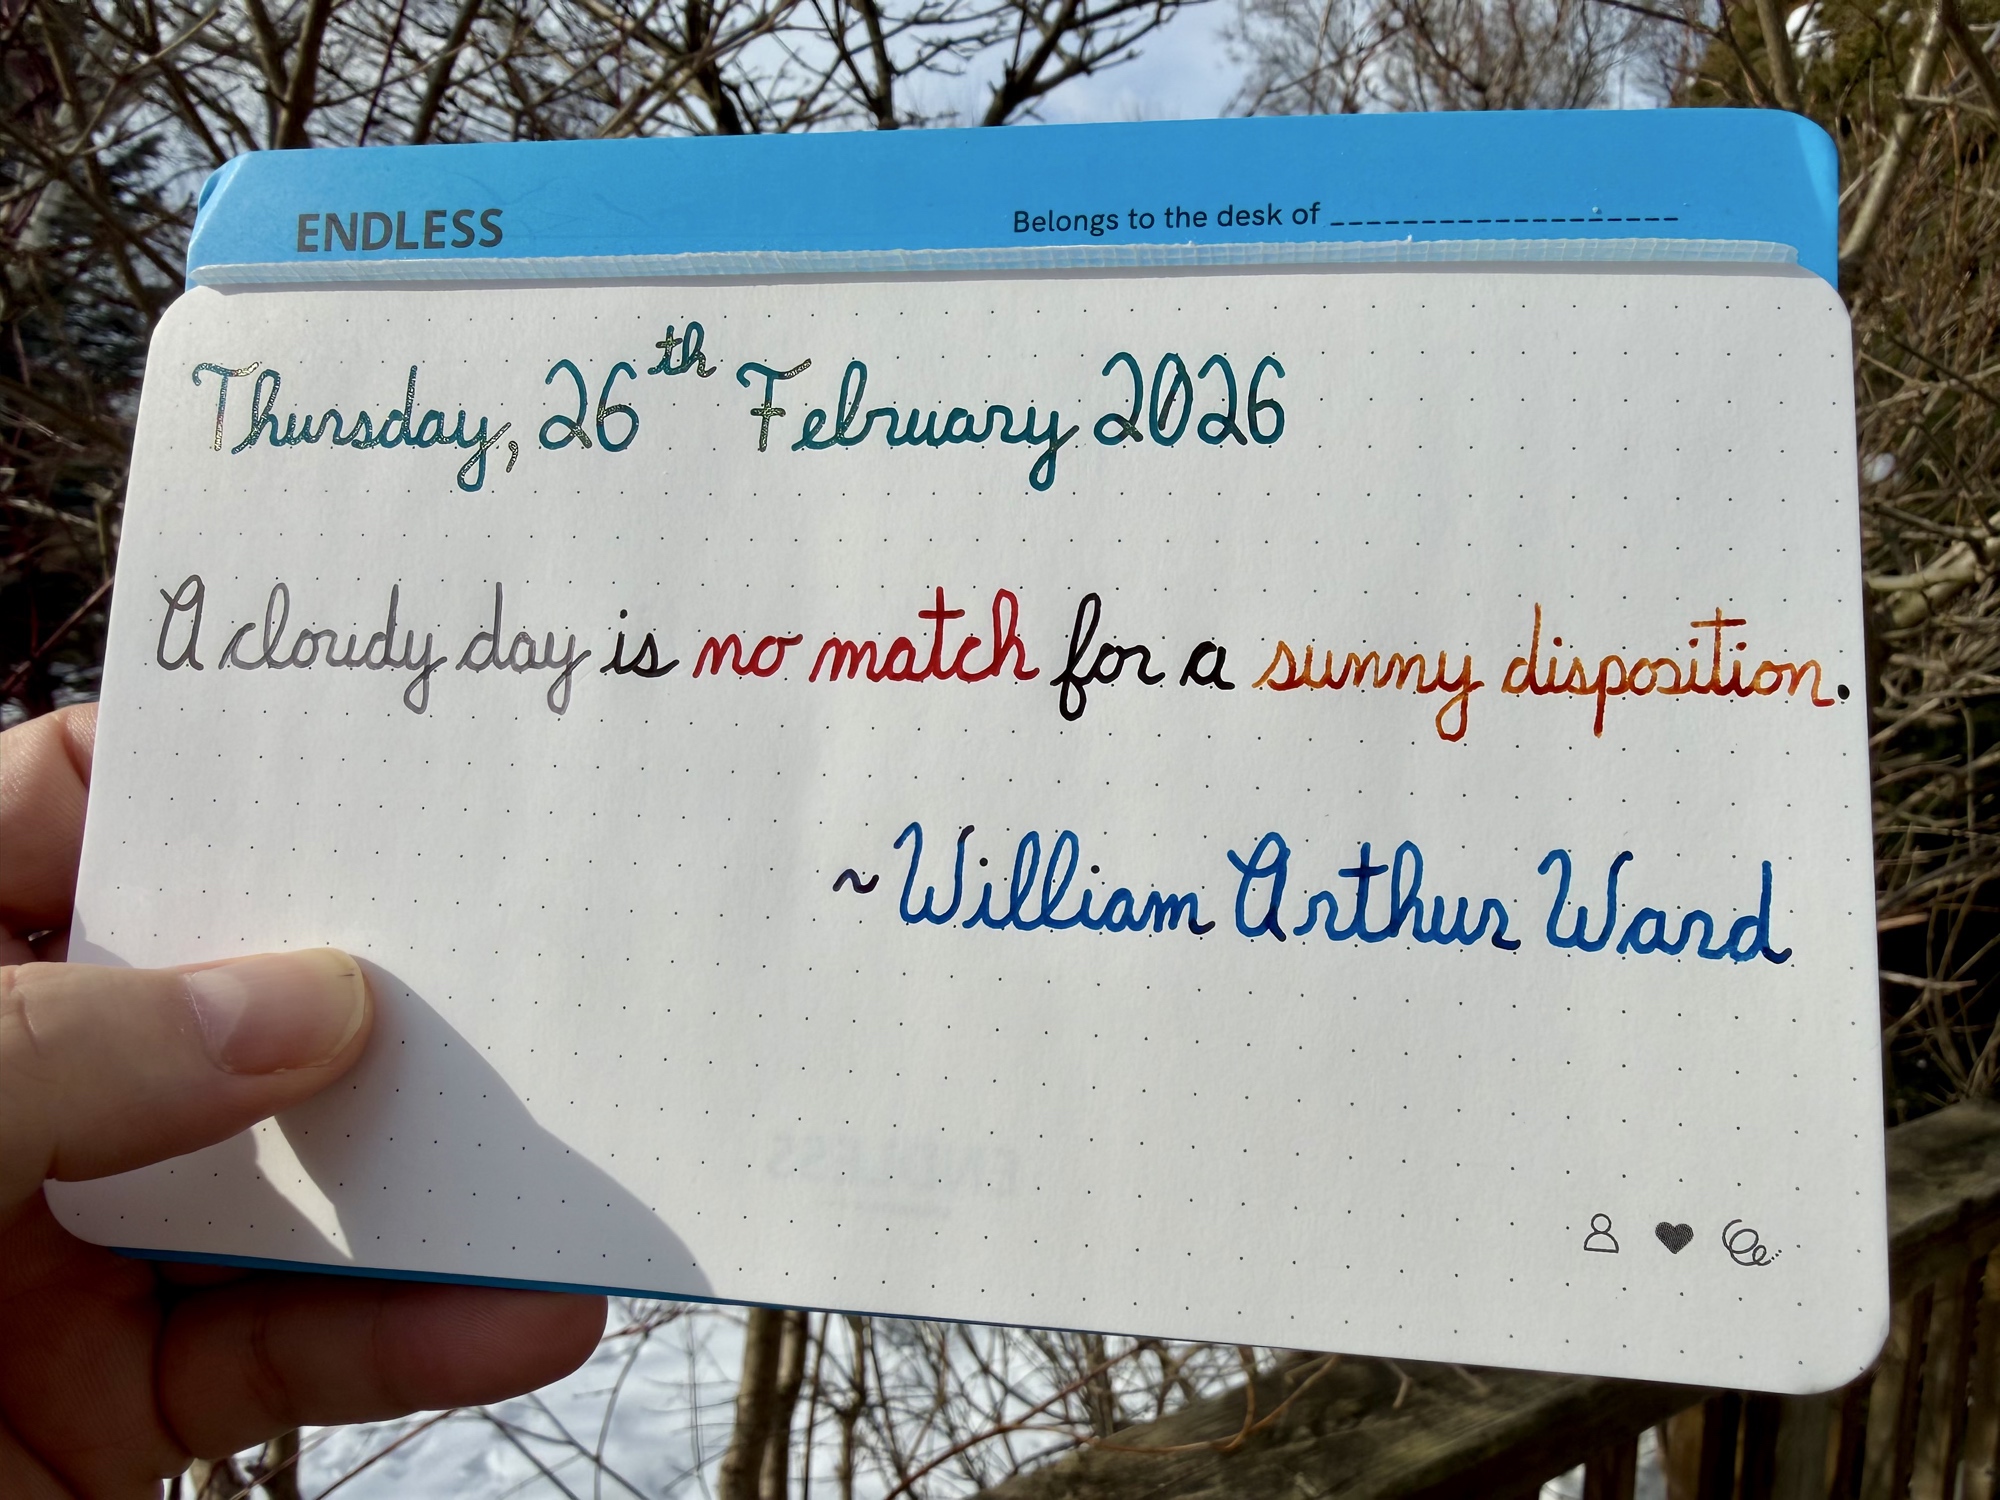 ENDLESS
Belongs to the desk of
Thursday, 26th February 2026
A cloudy day is no match for a sunny disposition.
~William Arthur Ward
ENDLESS